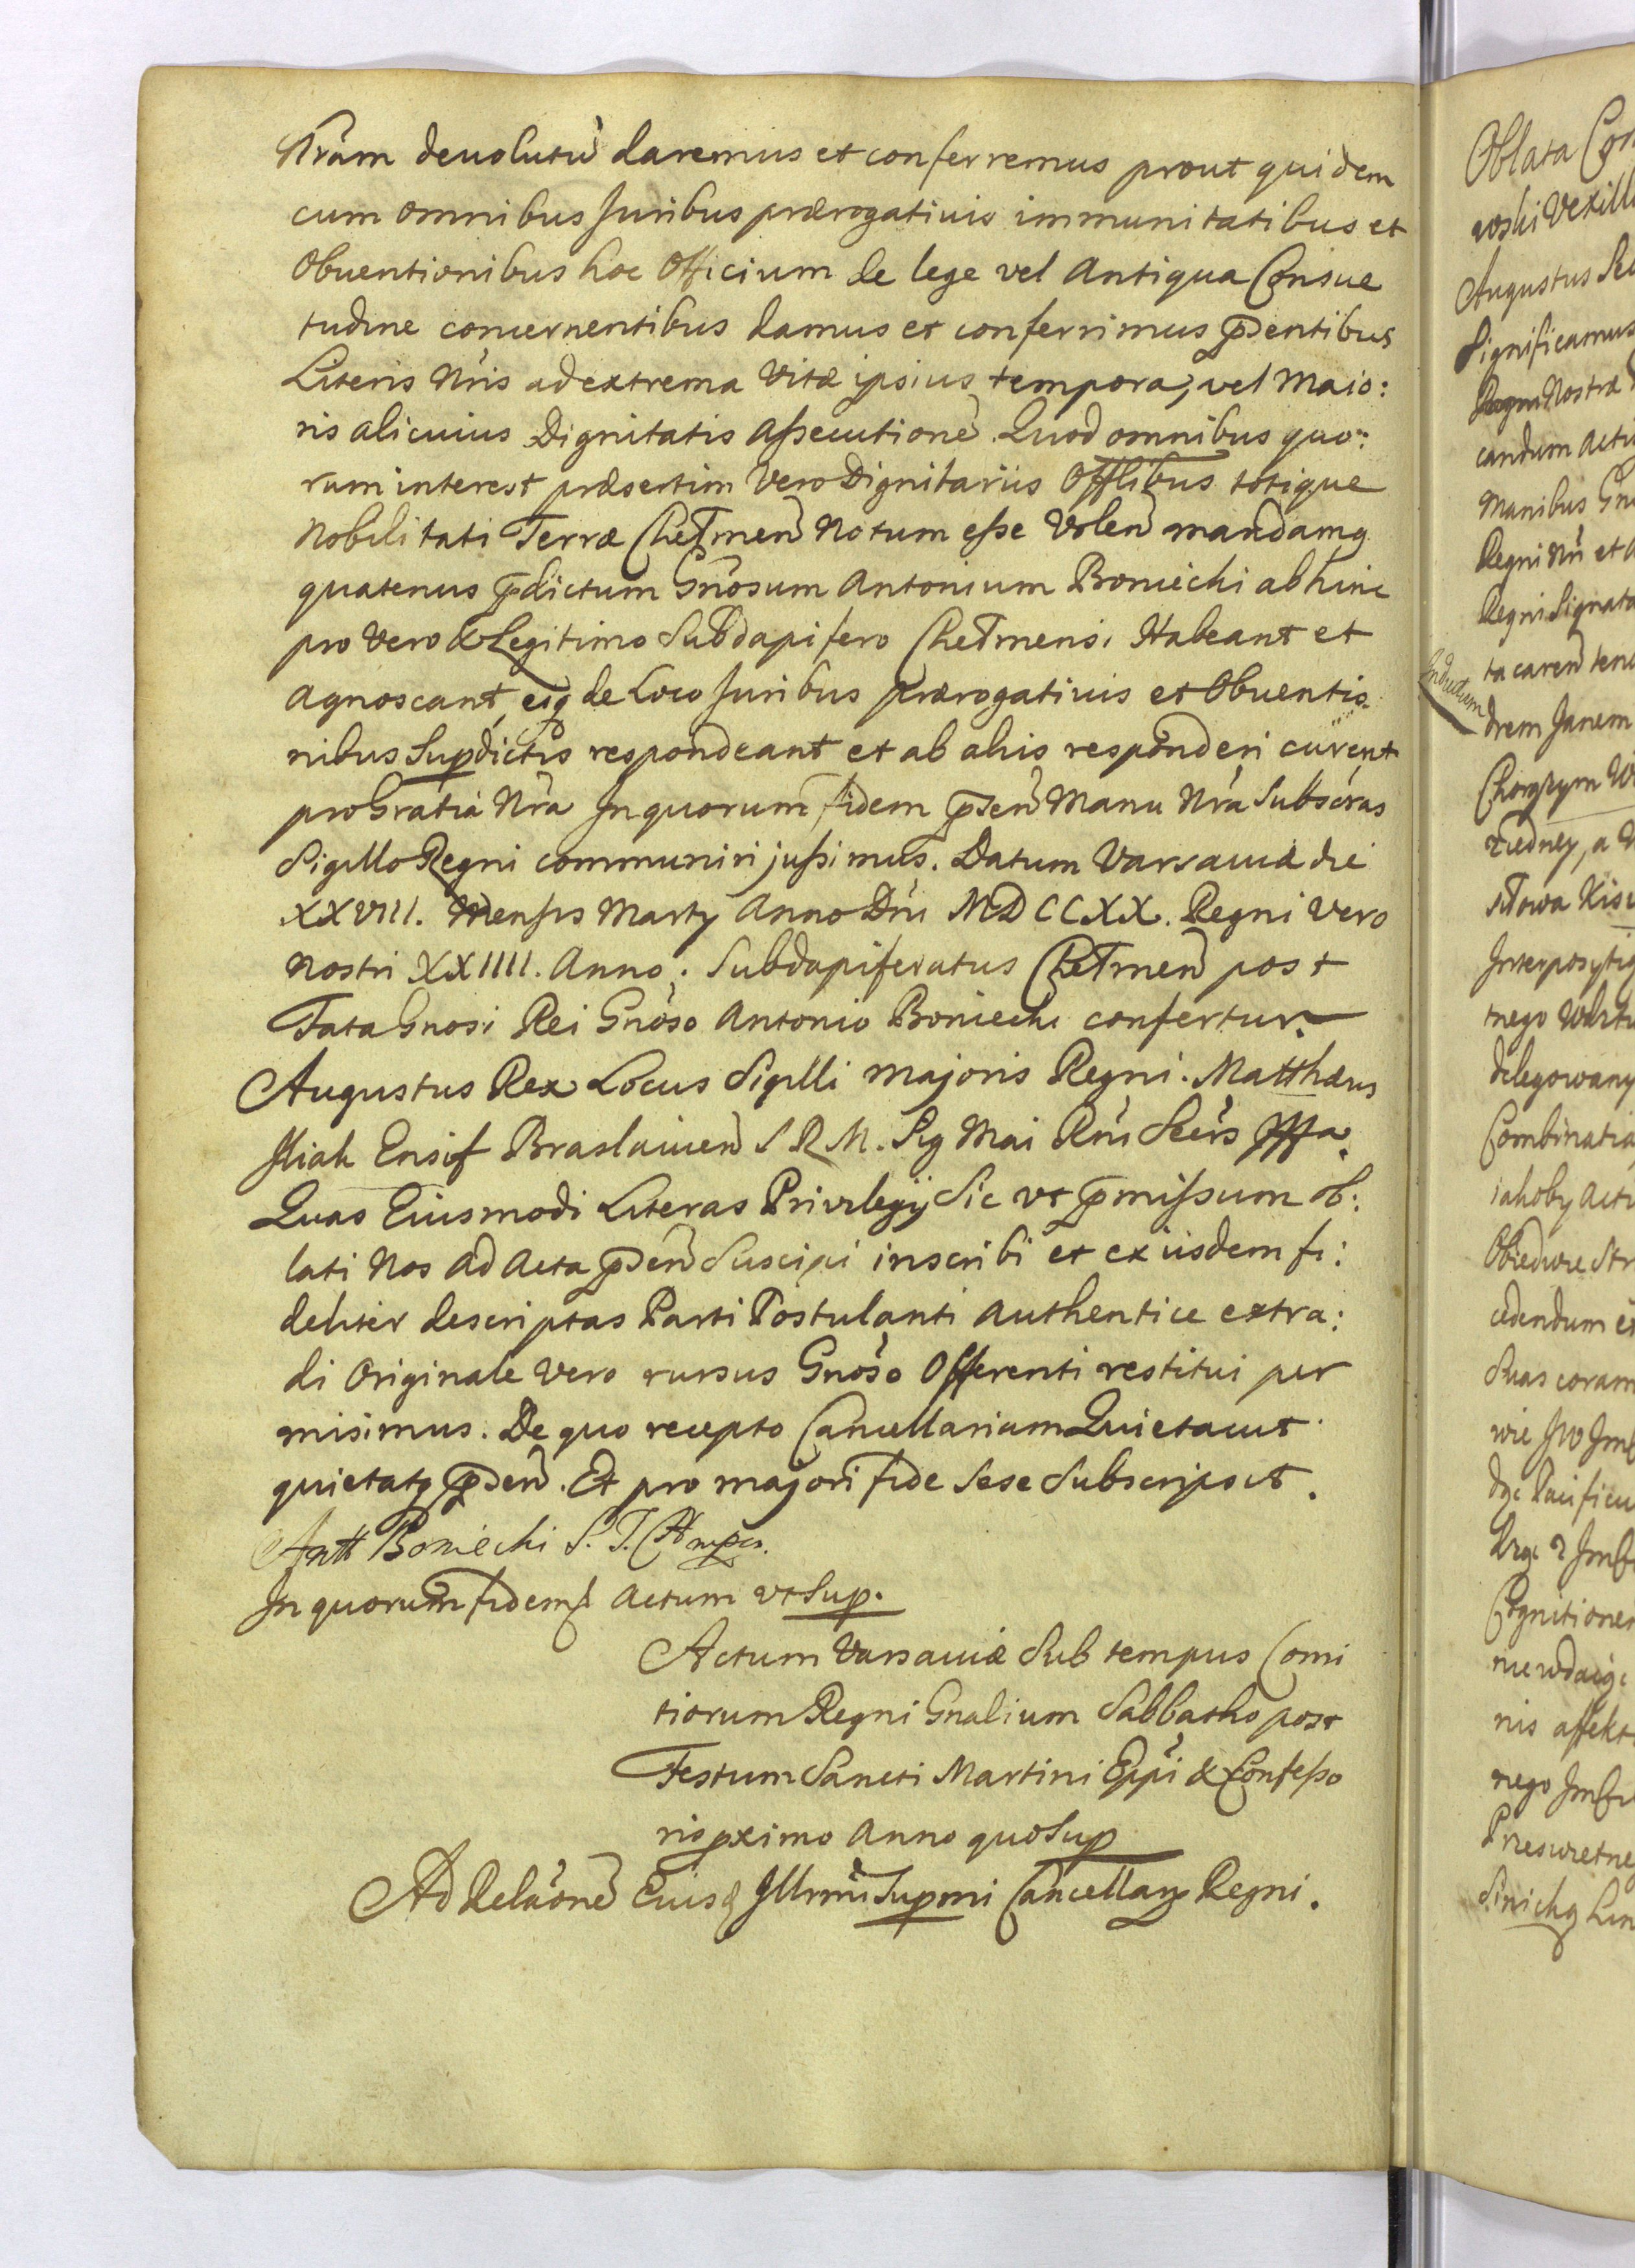 Nram deuolutu daremus et conferremus prout quidem
cum omnibus Juribus prærogatiuis immunitatibus et
Obuentionibus hoc Officium de lege vel Antiqua Consue
tudine concernentibus damus et conferrimus pdentibus
Literis Nris ad extrema Vitæ ipsius tempora, vel Maio:
ris alicuius Dignitatis Assecutione. Quod omnibus quo:
rum interest præsertim Vero Dignitariis Offlibus totique
Nobilitati Terræ Chełmen Notum esse Volen mandamq
quatenus pdictum Gnosum Antonium Boniecki abhinc
pro Vero & Legitimo Subdapifero Chełmensi Habeant et
Agnoscant, eiq de Loco Juribus Prærogatiuis et Obuentio
nibus Supdictis respondeant et ab aliis responderi curent
pro Gratia Nra In quorum fidem pden Manu Nra Subscras
Sigillo Regni communiri jussimus. Datum Varsauiæ die
XXVIII. Mensis Marty Anno Dni MDCCXX. Regni Vero
Nostri XXIIII. Anno. Subdapiferatus Chełmen post
Fata Gnosi Rei Gnoso Antonio Boniecki confertur.
Augustus Rex Locus Sigilli majoris Regni. Matthæus
Ensif Braslauien S R M. Sig Mai Rni Scrs
Quas Eiusmodi Literas Privilegij Sic vt pmissum ob:
lati Nos Ad Acta pden Suscipi inscribi et ex iisdem fi:
deliter descriptas Parti Postulanti Authentice extra:
di Originale Vero rursus Gnoso Offerenti restitui per
misimus. De quo recepto Cancellariam Quietauit
quietatq pden. Et pro majori fide Sese Subscripsit.
Antt Boniecki S. T.
In quorum fidem & Actum vt Sup.
Actum Varsauiæ Sub tempus Comi
tiorum Regni Gnalium Sabbatho post
Festum Sancti Martini Eppi & Confesso
ris pximo Anno quo Sup
Ad Relaone Eiusd Illrmi Supmi Cancellarij Regni.
Oblata
Vexill
Augustus
Significamus
Nostra
candum
Manibus
Regni Nri et
Regni Signata
ta caren
Inductum
drem Janem
Chorązym
a
delegowany
Combinatia
cedendum
Suas coram